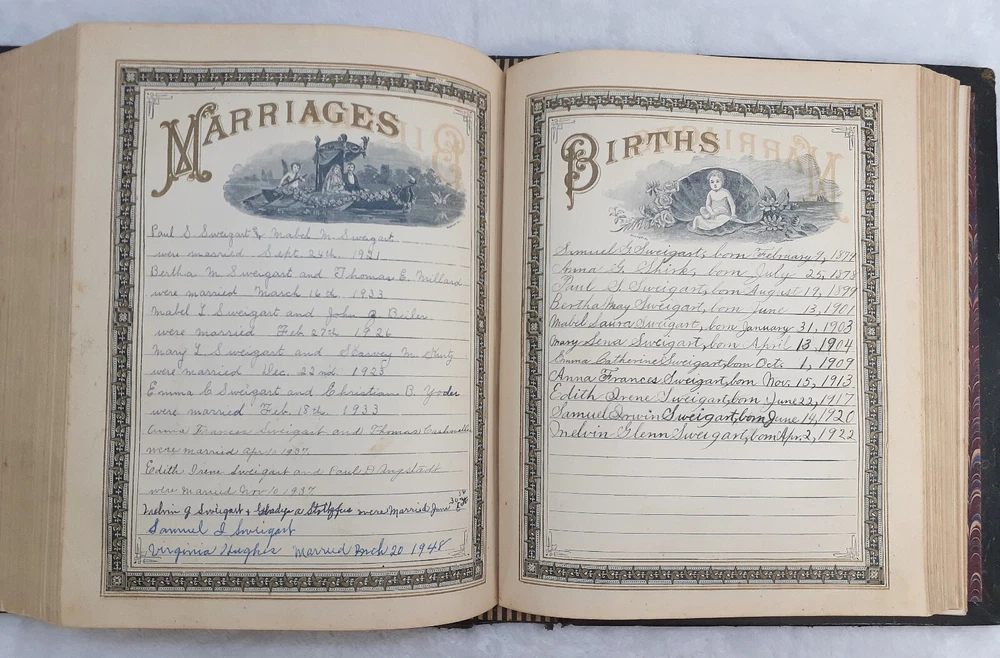 MARRIAGES
Paul S Sweigart & Mabel M. Sweigart
were married Sept 24th. 1921
Bertha M Sweigart and Thomas E. Millard
were married March 16th. 1933
Mabel L Sweigart and John Beiler
were married Feb 27th 1926
Mary L. Sweigart and Harvey M.
were married Dec. 22nd. 1928
Emma C Sweigart and Christian B. Yoder
were married Feb. 18th. 1933
Anna Frances Sweigart and Thomas
were married Apr 1937
Edith Irene Sweigart and Paul D Angstadt
were married Nov 1937
Melvin G Sweigart & Gladys A Stoltzfus were Married June
Samuel I Sweigart
Virginia Hughes Married Mch 20 1948
BIRTHS
Samuel G. Sweigart, born February 7, 1874
Anna G. Shirk, born July 25, 1878
Paul S. Sweigart, born August 19, 1899
Bertha May Sweigart, born June 13, 1901
Mabel Laura Sweigart, born January 31, 1903
Mary Lena Sweigart, born April 13, 1904
Emma Catherine Sweigart, born Oct. 1, 1909
Anna Frances Sweigart, born Nov. 15, 1913
Edith Irene Sweigart, born June 22, 1917
Samuel Irwin Sweigart, born June 14, 1920
Melvin Glenn Sweigart, born Apr. 2, 1922